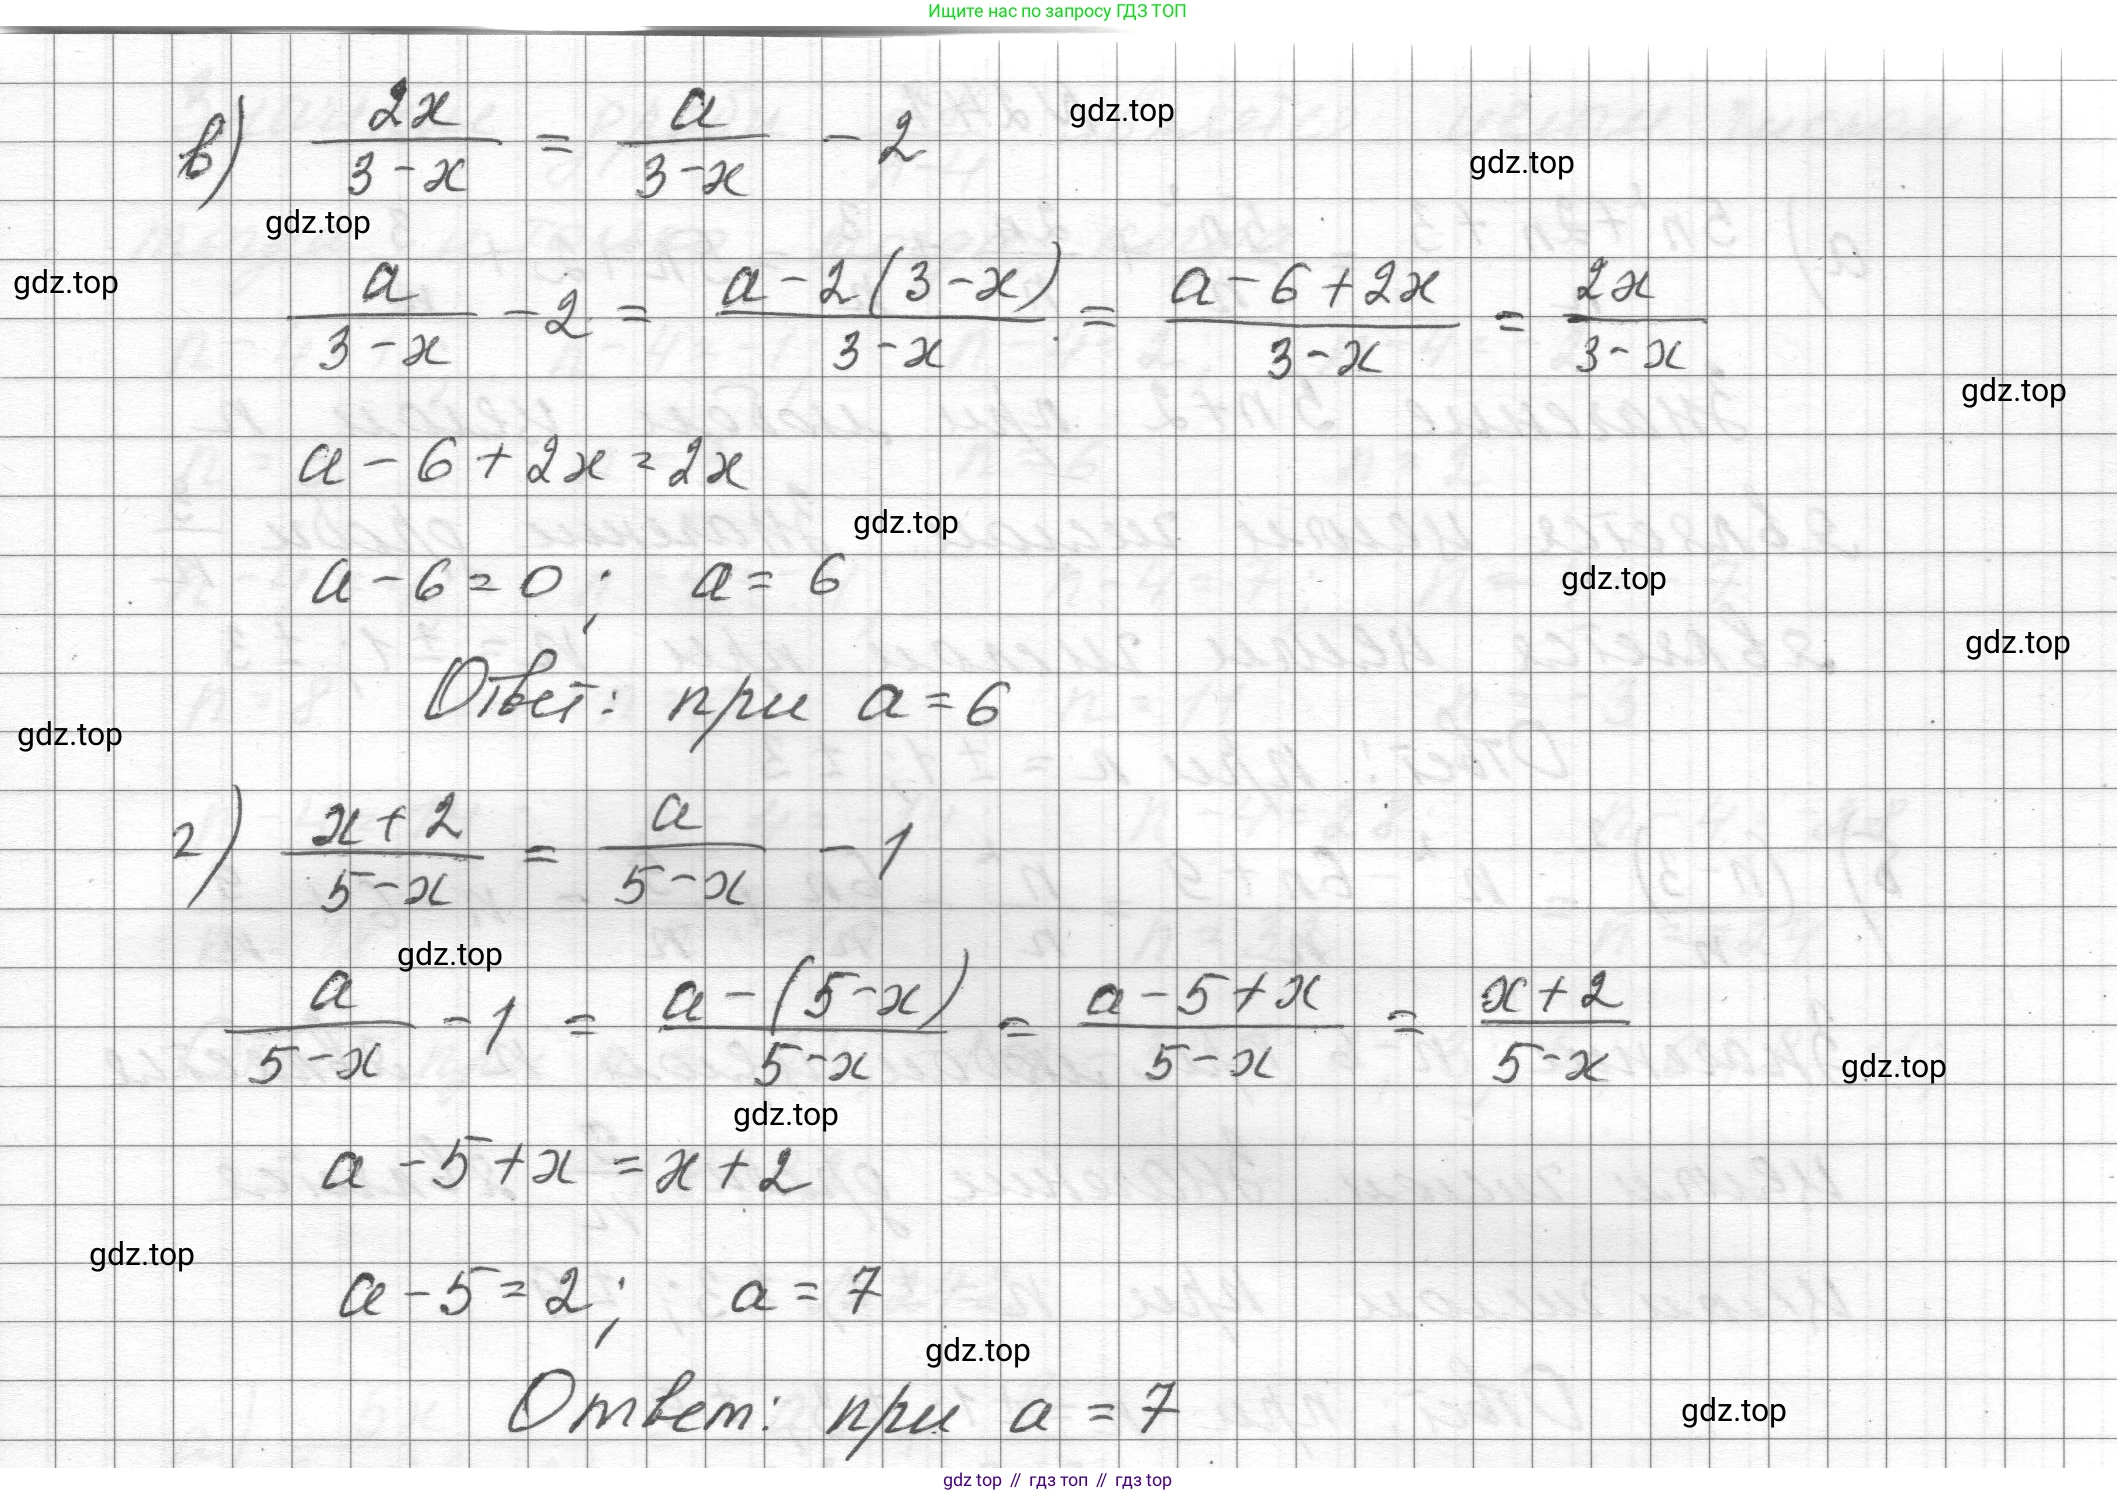 Ищите нас по запросу ГДЗ ТОП
в) 2x/(3-x) = a/(3-x) - 2
gdz.top
gdz.top
gdz.top
gdz.top
a/(3-x) - 2 = (a-2(3-x))/(3-x) = (a-6+2x)/(3-x) = 2x/(3-x)
gdz.top
a-6+2x=2x
gdz.top
a-6=0; a=6
gdz.top
gdz.top
Ответ: при a=6
gdz.top
г) (x+2)/(5-x) = a/(5-x) - 1
gdz.top
a/(5-x) - 1 = (a-(5-x))/(5-x) = (a-5+x)/(5-x) = (x+2)/(5-x)
gdz.top
gdz.top
a-5+x=x+2
gdz.top
a-5=2; a=7
gdz.top
Ответ: при a=7
gdz.top
gdz top // гдз топ // гдз top